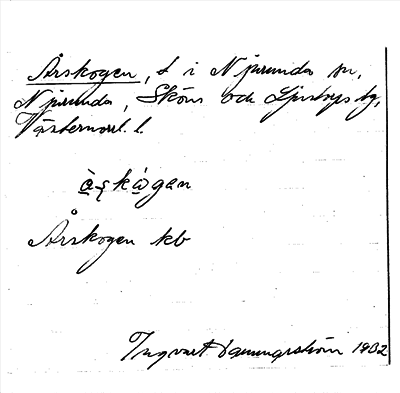 Årskogen, t i Njurunda sn,
Njurunda, Sköns och Ljustorps tg,
Västernorrl. l.
Årskogen kb
Ingvart Dammgström 1932